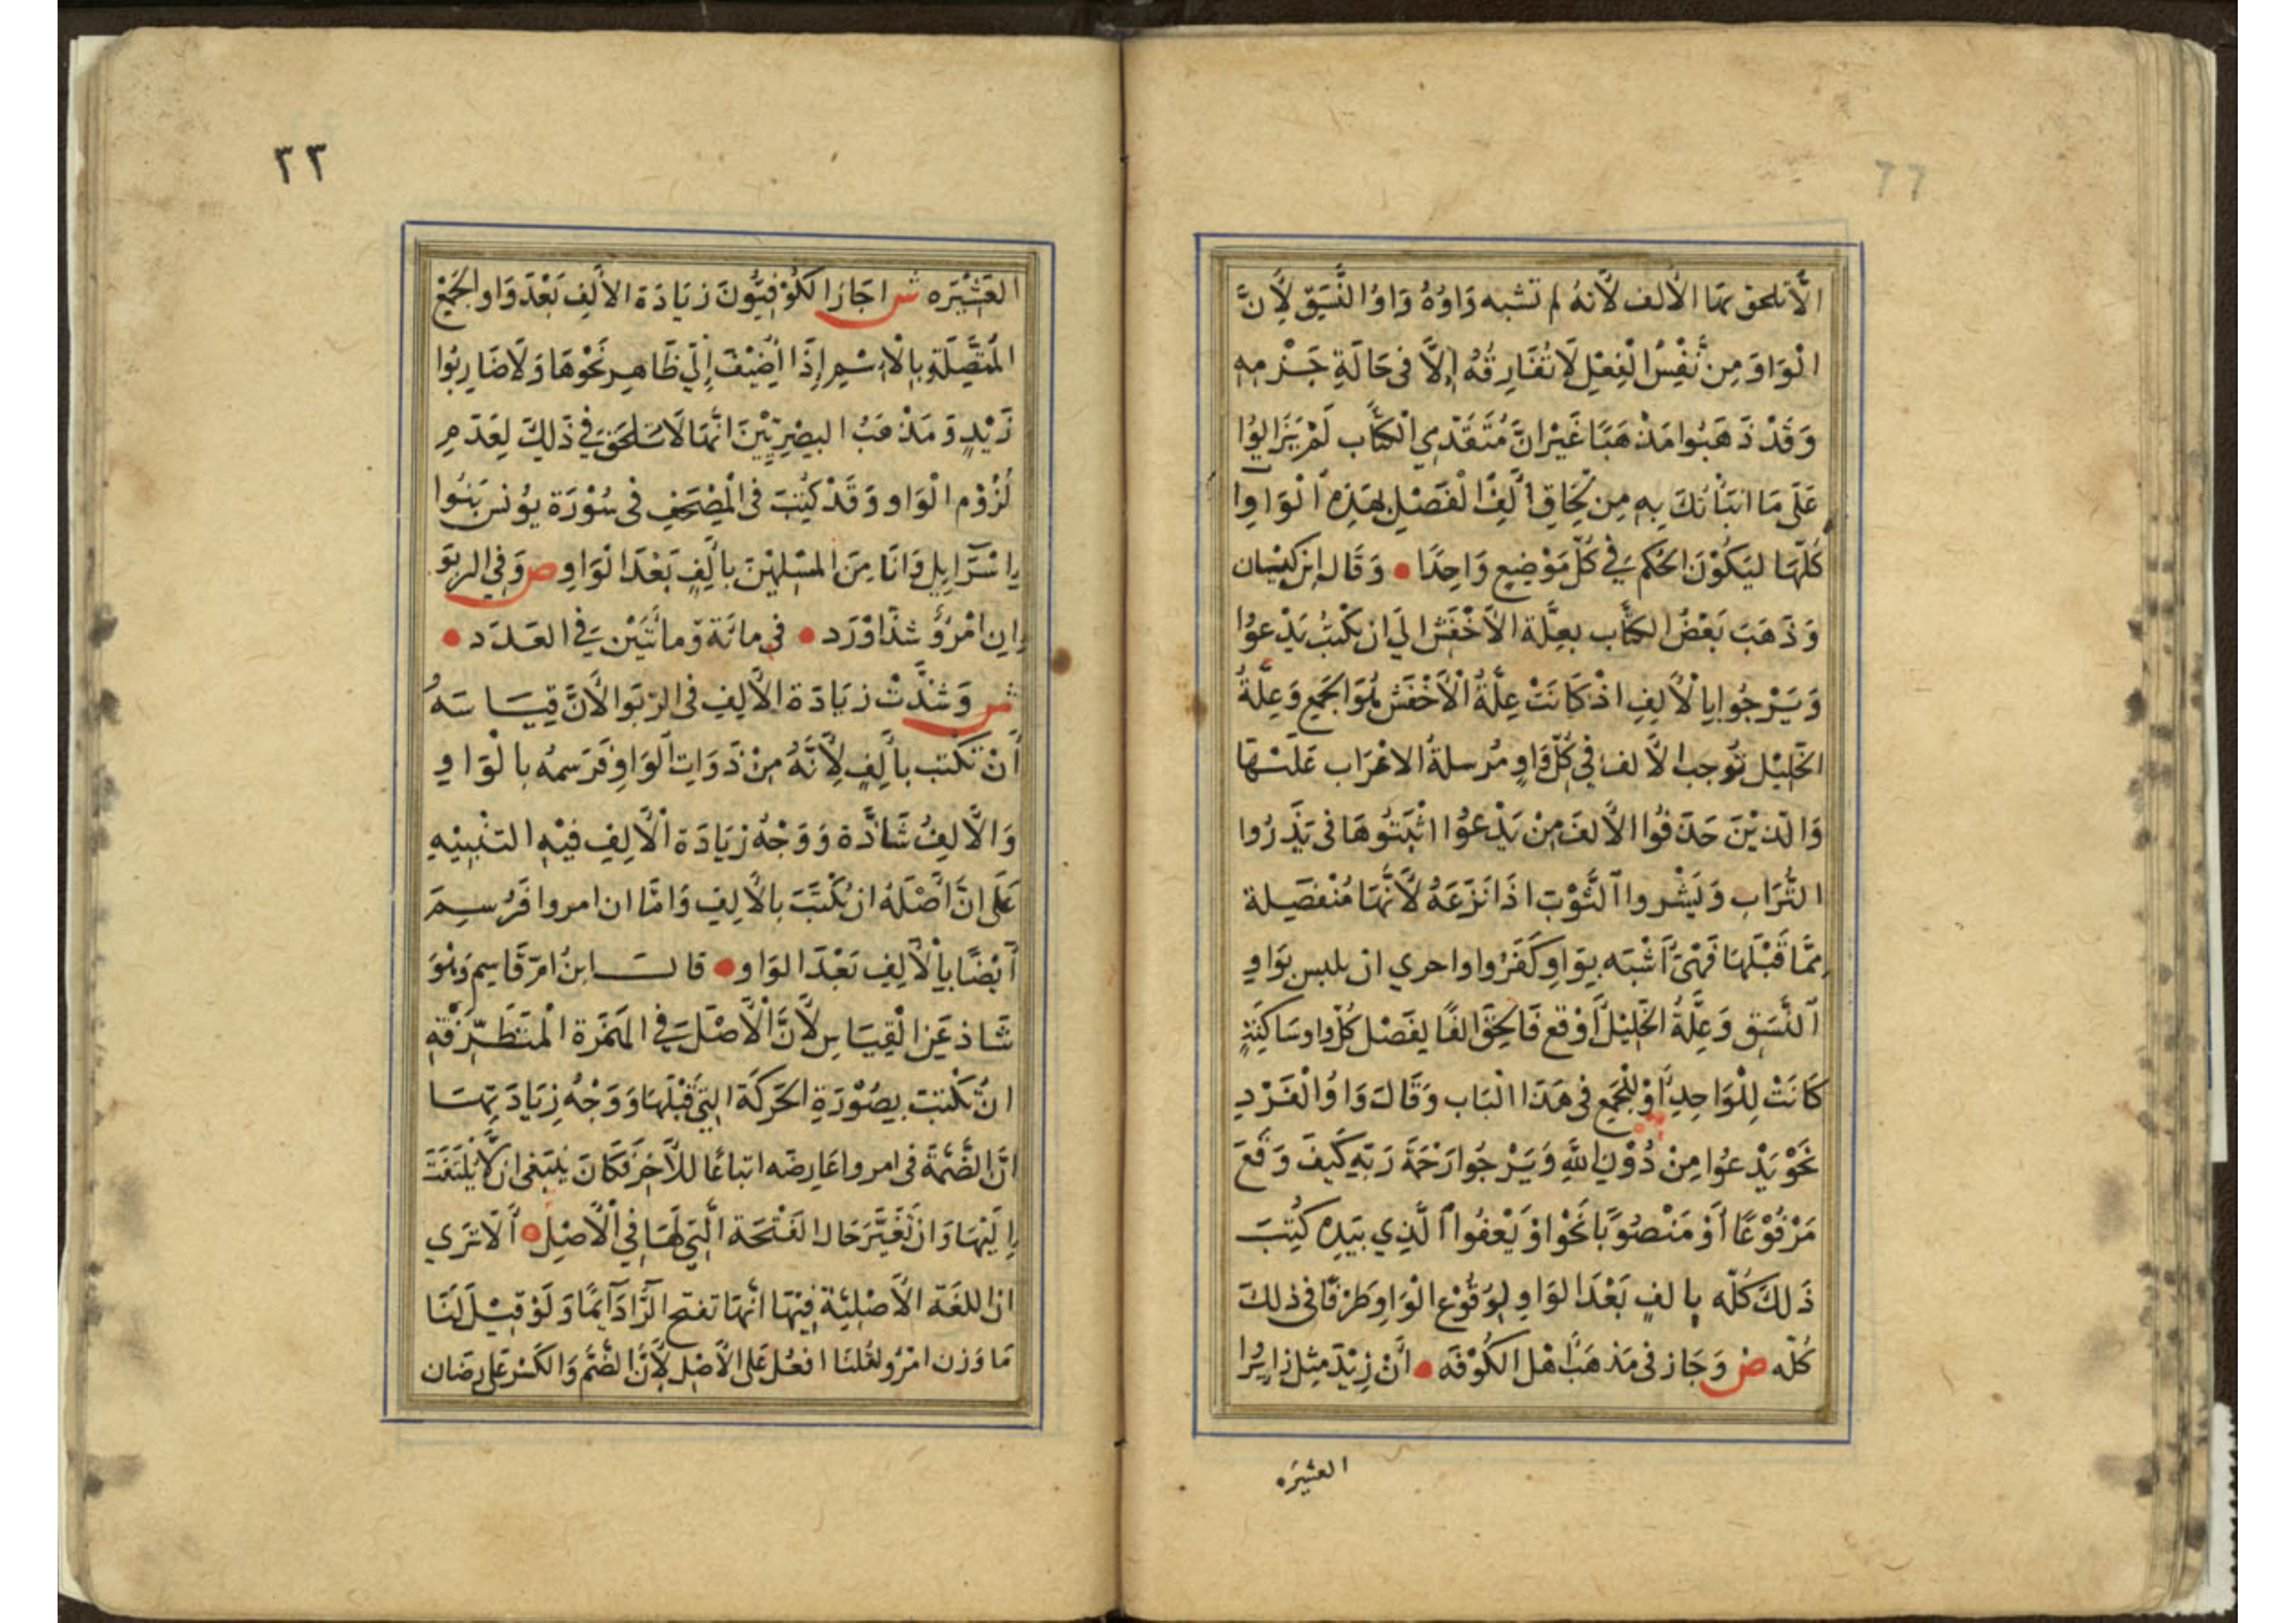 الأتلحق بها الألف لأنه لم تشبه وَاوُهُ وَاوُ النَّسَقِ لِأَنَّ
الْوَاوَ مِن نَفْسِ الْفِعْلِ لَا تُفَارِقُهُ إِلَّا فى حَالَةِ جَزْمِهِ
وَقَدْ ذَهَبُوا مَذْهَبًا غَيْرَ انَّ مُتَقَدِّمِي الْكُتَّابِ لَمْ يَزَالُوْا
عَلَى مَا انبَأْتُكَ بِهِ مِن لِحَاقِ أَلِفِ الْفَصْلِ بِهَذِهِ الْوَاوِا
كُلِّهَا لِيَكُوْنَ الحُكْمُ فِي كُلِّ مَوْضِعٍ وَاحِدًا • وَقَالَ ابْن كَيْسَان
وَذَهَبَ بَعْضُ الكُتَّاب بعِلَّة الاَخْفَشِ الَي ان يكْتُبُ يَدْعوُا
وَيَرْجُوا بِالْألِفِ اذْ كَانَتْ عِلَّةُ الْأَخْفَشِ لِوَا الجَمِيعِ وَعِلَّةُ
الخَلِيْلِ تُوجب الألف فِي كُلِّ وَاوٍ مُرسلةُ الاعْرَاب عَلَيْهَا
وَالَّذِيْنَ حَذَفُوا الألفَ مِنْ يَدْعُوْا اثْبَتُوهَا فى يَذْرُوا
التُّرَاب وَيَشْروا الثَّوْبَ اذَا نَزَعَهُ لأنَّهَا مُنْفَصِلة
مِمَّا قَبْلَهَا فَهْيَ أَشْبَه بِوَاوِ كَفَرُوا واحري ان يلبس بوَاوِ
النَّسَقِ وَعِلَّةُ الخَلِيْل أَوْقع فَالحِقْ الفًا لِفَصْل كُلّ واو سَاكِنَةٍ
كَانَتْ لِلْوَاحِدِ أَوْ لِلْجَمْعِ فى هَذَا الْبَاب وَقَالَ وَاوُ الْفَرْدِ
نَحْوَ يَدْعُوا مِنْ دُوْنِ اللَّهِ وَيَرْجُوا رَحْمَةَ رَبِّهِ كَيفَ وَقَعَ
مَرْفُوْعًا أَوْ مَنْصُوبًا نَحْوَ اوْ يَعْفُوا الَّذِي بِيَدِهِ كُتِبَ
ذَلكَ كُلّه بالفٍ بَعْدَ الوَاوِ لِوُقُوْعِ الْوَاوِ طَرْفًا فى ذلك
كُلّه ص وَجَاز فى مَذهَبْ اهْل الكُوْفَه • انْ زِيْدَ مِثل زايرُوا
العشيره
٢٢
العَشِيْرَه ش اجَازَ الكُوْفِيُّونَ زِيَادَة الأَلِفِ بَعْدَ وَاو الجَمْعِ
المُتَّصِلَةِ بِالْاِسْمِ إِذَا أُضِيْفَ إِلَي ظَاهِرٍ نَحْوَ هَاوُلَا ضَارِبُوا
زَيْدٍ وَمَذْهَبُ البصْرِيِّيْنَ انَّهَا لَا تَلحَقُ فِي ذَلِكَ لِعَدَمِ
لُزُوْمِ الْوَاو وَقَدْ كُتِبَتْ فى الْمُصْحَفِ فى سُوْرَة يوُنس بَنُوا
إِسْرَايِيل وَانَا مِنَ المسْلِمِيْنَ بأَلِفٍ بَعْدَ الْوَاوِ ص وَفِي الرِبَو
إِنِ امْرُؤٌ شذًا وَرَد • فى مائة وَمائَتَيْنِ فِي العَدَد •
ش وَشَذَّتْ زيَادَة الأَلِفِ فى الرّبَوا لأَنَّ قِيَاسَهُ
أَنْ تكْتب بأَلِفٍ لِأَنَّهُ مِنْ ذَوَاتِ الوَاوِ فَرَسمُه بالْوَاوِ
وَالأَلِفُ شَاذَّة وَوَجْهُ زيَادَة الْألِفِ فِيْهِ التنْبِيْهِ
عَلَى انَّ أَصْلَهُ ان يُكْتَبَ بالأَلِفِ وَامَّا ان امروا فَرُسِمَ
أَيْضًا بِالْألِفِ بَعْدَ الوَاو • قالَ ابنُ امّ قَاسِم وَهْوَ
شَاذ عَنِ الْقِيَاس لأَنَّ الْأَصْلَ فِي الهَمْزة الْمُتَطَرِّفَةِ
انْ تكْتبَ بِصُوْرَةِ الحَرَكَة الَّتِي قَبْلَهَا وَوَجْهُ زِيَادَتِهَا
انَّ الضَّمَّةَ فى امروا عَارِضَه اتباعًا للآخِر فَكَانَ يَنبَغي ان لَّا يُلتَفَتَ
إِلَيْهَا وَان تُغَيّرَ حَال الفَتْحَة الَّتِي لَهَا فِي الْأَصْل • أَلَا تَرَي
ان اللغَة الأَصْلِيَّة فِيْهَا انَّهَا تفتح الرَّا دَآئِمًا وَلَوْ قِيْلَ لَنَا
مَا وَزن امْرُو لقُلنَا افعُل عَلَى الأَصْل لأَنَّ الضَّمَّ وَالكَسْرَ عَارِضَان